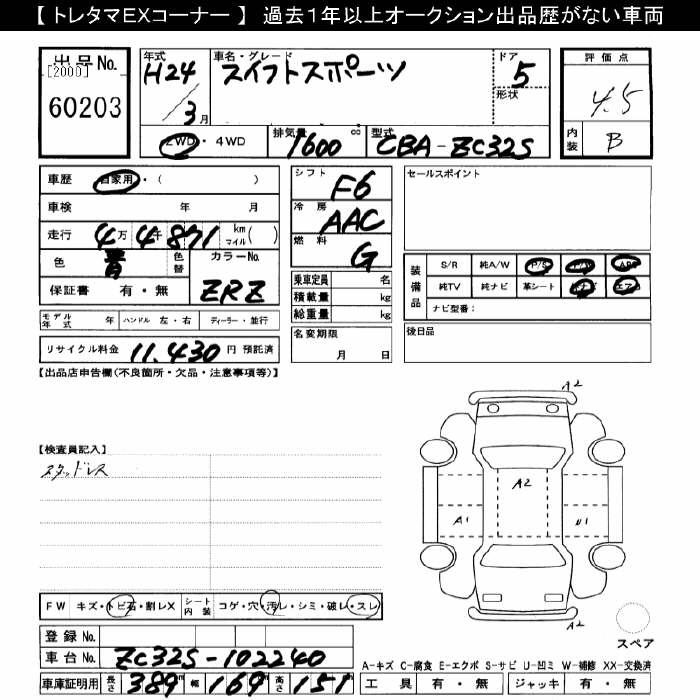 【 トレタマEXコーナー 】 過去1年以上オークション出品歴がない車両
出品No.
[2000]
60203
年式
H24
3月
車名・グレード
スイフトスポーツ
ドア
5
形状
評価点
4.5
内装
B
2WD・4WD
排気量
1600 cc
型式
CBA-ZC32S
車歴 自家用・( )
車検 年 月
走行 4万4千871 km マイル( )
色 青 色替
カラーNo.
ZRZ
保証書 有・無
モデル年式 年 ハンドル 左・右 ディーラー・並行
リサイクル料金 11,430 円 預託済
シフト
F6
冷房
AAC
燃料
G
乗車定員 名
積載量 kg
総重量 kg
名変期限
月 日
セールスポイント
装備品
S/R 純A/W P/S P/W ABS
純TV 純ナビ 革シート エアコ
ナビ型番:
後日品
【出品店申告欄(不良箇所・欠品・注意事項等)】
【検査員記入】
スタッドレス
A2
A2
A1
U1
A2
FW キズ・トビ石・割レX
シート内装 コゲ・穴・汚レ・シミ・破レ・スレ
登録No.
車台No. ZC32S-102240
車庫証明用 長さ 389 幅 169 高さ 151
スペア
A-キズ C-腐食 E-エクボ S-サビ U-凹ミ W-補修 XX-交換済
工具 有・無 ジャッキ 有・無